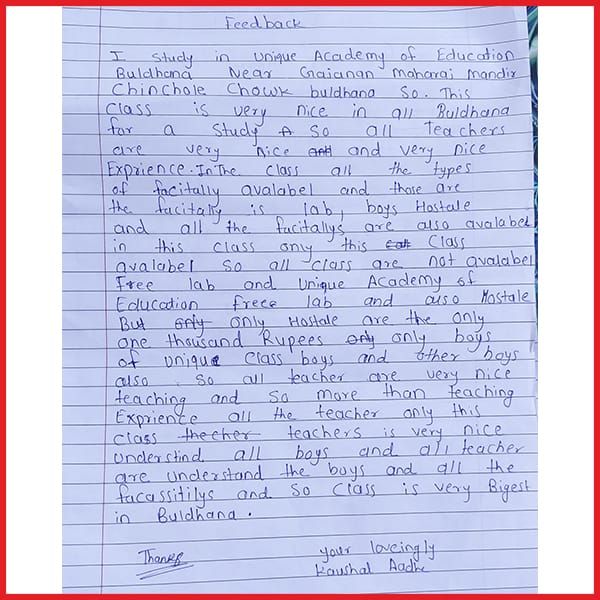 Feedback
I study in Unique Academy of Education
Buldhana Near Gajanan maharaj mandir
Chinchole Chowk buldhana So. This
Class is very nice in all Buldhana
for a study A so all Teachers
are very nice and very nice
Exprience. In The class all the types
of facitally avalabel and those are
the facitally is lab, boys Hostale
and all the facitallys are also avalabel
in this class only this Class
avalabel so all class are not avalabel
Free lab and Unique Academy of
Education freee lab and also Hostale
But only only Hostale are the only
one thousand Rupees only only boys
of unique class boys and other boys
also. So all teacher are very nice
teaching and so more than teaching
Exprience all the teacher only this
class thecher teachers is very nice
understind all boys and all teacher
are understand the boys and all the
facassitilys and so Class is very Bigest
in Buldhana.
Thanks
your loveingly
Kaushal